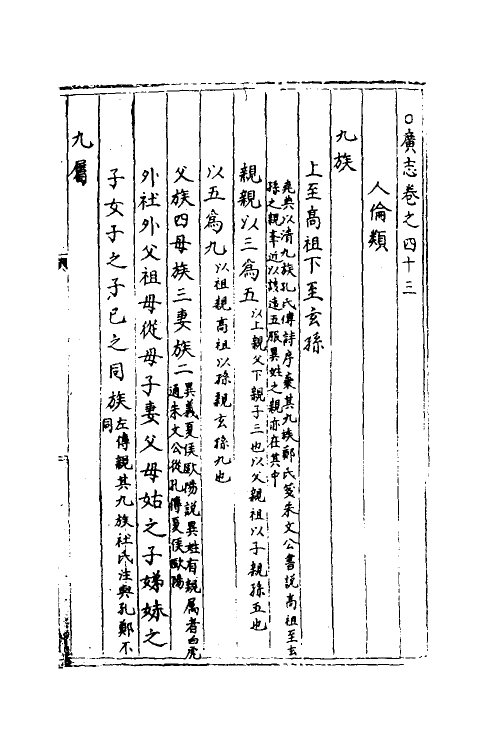 ○廣志卷之四十三
人倫類
九族
上至髙祖下至玄孫
堯典以清九族孔氏傳詩序棄其九族鄭氏箋朱文公書說高祖至玄
孫之親奉近以該遠五服異姓之親亦在其中
親親以三爲五
以上親父下親子三也以父親祖以子親孫五也
以五爲九
以祖親高祖以孫親玄孫九也
父族四母族三妻族二
異義夏侯歐陽說異姓有親属者白虎
通朱文公從孔傳夏侯歐陽
外祖外父祖母從母子妻父母姑之子娣妹之
子女子之子已之同族
左傳親其九族杜氏注與孔鄭不
同
九屬